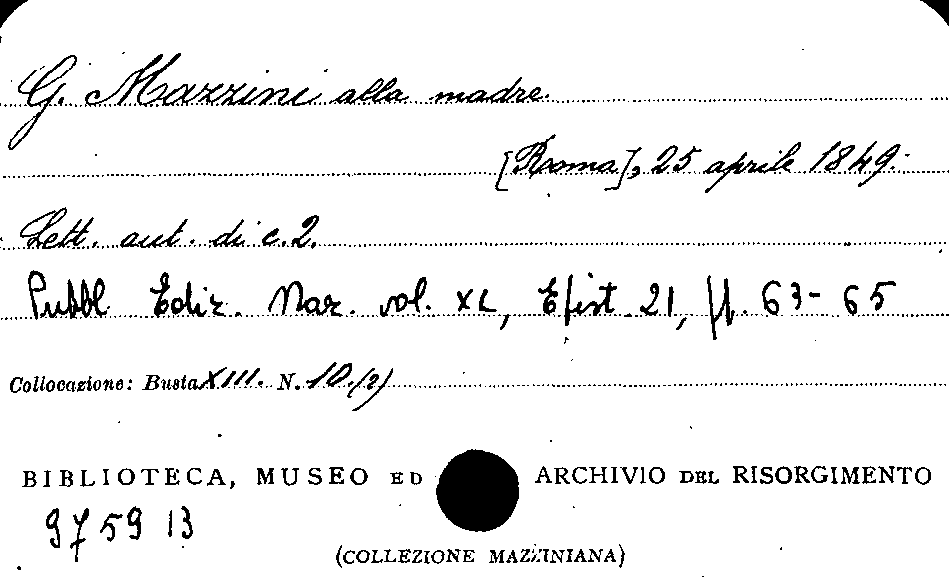 G. Mazzini alla madre.
[Roma], 25 aprile 1849.
Lett. aut. di c. 2.
Pubbl. Ediz. Naz. vol. XL, Epist. 21, pp. 63-65
Collocazione: Busta XIII. N. 10.(2)
BIBLIOTECA, MUSEO ED ARCHIVIO DEL RISORGIMENTO
975913
(COLLEZIONE MAZZINIANA)